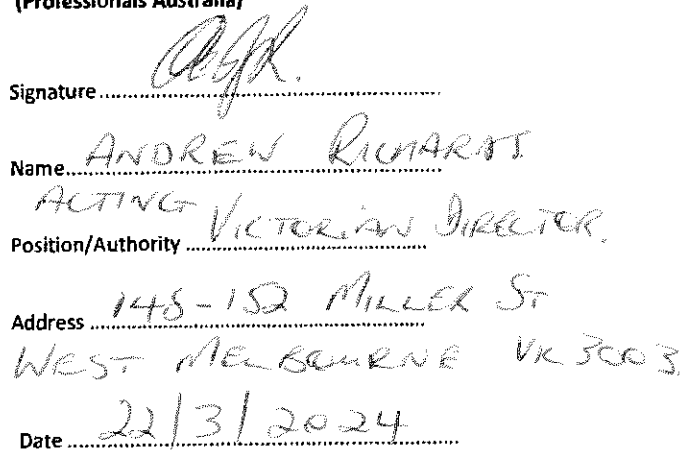 (Professionals Australia)
Signature
Name ANDREW RICHARDS
ACTING VICTORIAN DIRECTOR.
Position/Authority
Address 145-152 MILLER ST
WEST MELBOURNE VIC 3003
Date 22/3/2024